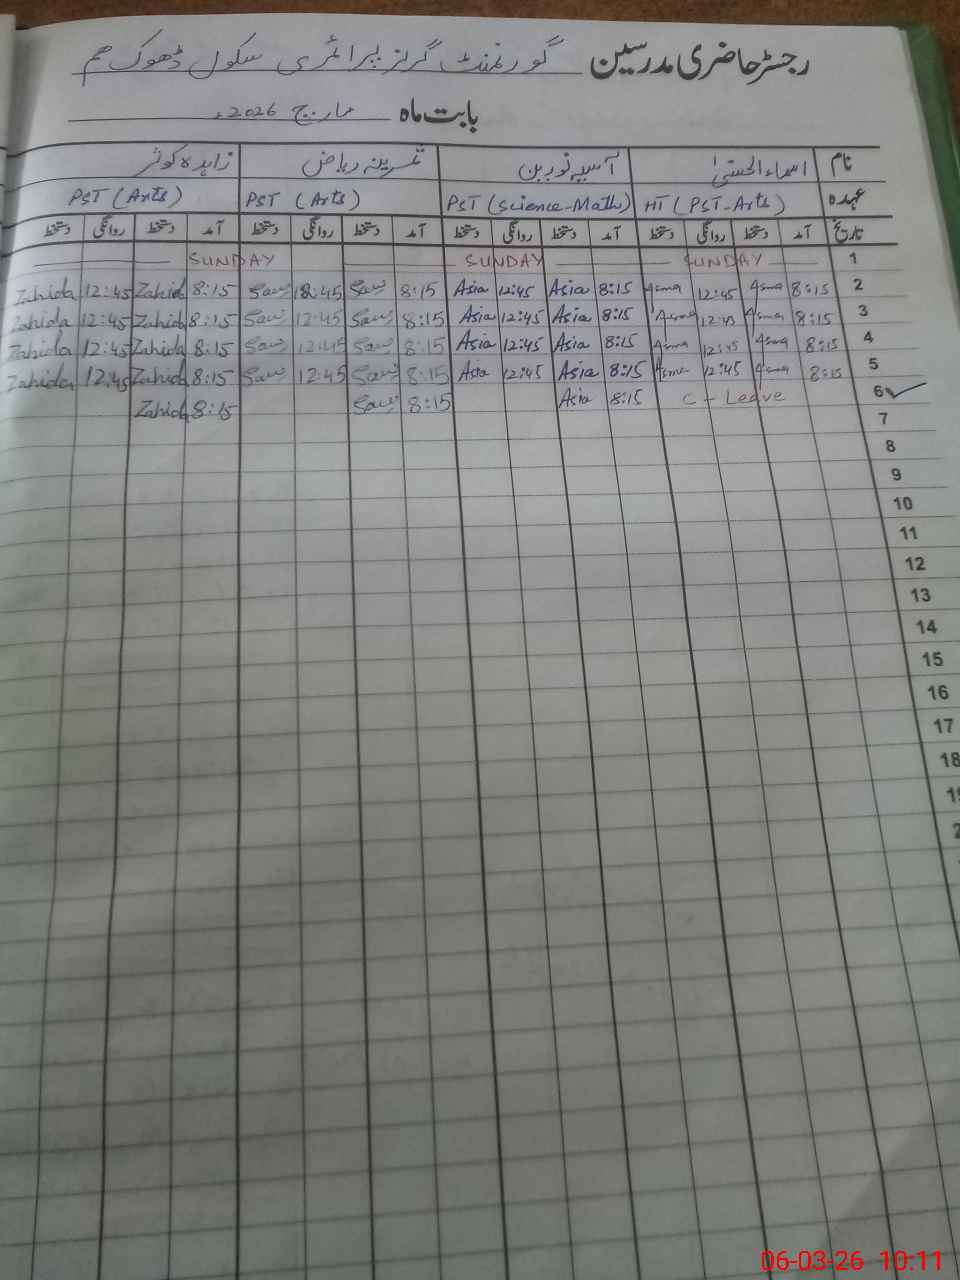 رجسٹر حاضری مدرسین گورنمنٹ گرلز پرائمری سکول ڈھوک ہم
بابت ماہ مارچ 2026ء
نام اسماء الحسنیٰ آسیہ نورین نسرینہ ریاض زاہدہ کوثر
عہدہ HT (PST-Arts) PST (Science-Math) PST (Arts) PST (Arts)
تاریخ آمد دستخط روانگی دستخط آمد دستخط روانگی دستخط آمد دستخط روانگی دستخط آمد دستخط روانگی دستخط
1 SUNDAY SUNDAY SUNDAY
2 8:15 Asma 12:45 Asma 8:15 Asia 12:45 Asia 8:15 12:45 8:15 Zahida 12:45 Zahida
3 8:15 Asma 12:45 Asma 8:15 Asia 12:45 Asia 8:15 12:45 8:15 Zahida 12:45 Zahida
4 8:15 Asma 12:45 Asma 8:15 Asia 12:45 Asia 8:15 12:45 8:15 Zahida 12:45 Zahida
5 8:15 Asma 12:45 Asma 8:15 Asia 12:45 Asia 8:15 12:45 8:15 Zahida 12:45 Zahida
6 C - Leave 8:15 Asia 8:15 8:15 Zahida
7
8
9
10
11
12
13
14
15
16
17
18
06-03-26 10:11